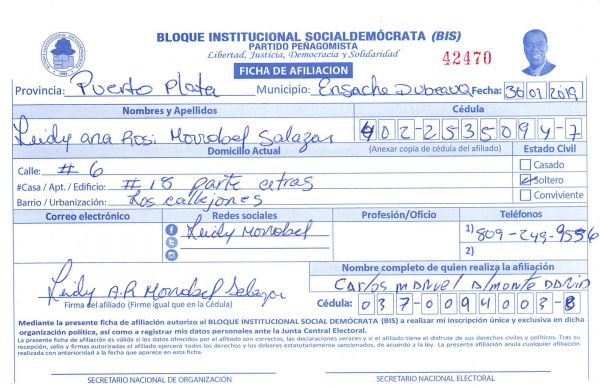 BLOQUE INSTITUCIONAL SOCIALDEMÓCRATA (BIS)
PARTIDO PEÑAGOMISTA
Libertad, Justicia, Democracia y Solidaridad
42470
FICHA DE AFILIACION
Provincia: Puerto Plata Municipio: Ensache Dubeaux Fecha: 30 01 2019
Nombres y Apellidos Cédula
Leidy ana Rosi Monobel Salazar 402-2535094-7
Domicilio Actual (Anexar copia de cédula del afiliado) Estado Civil
Calle: # 6 Casado
#Casa / Apt. / Edificio: # 18 parte atras Soltero
Barrio / Urbanización: Los callejones Conviviente
Correo electrónico Redes sociales Profesión/Oficio Teléfonos
Leidy Monobel 1) 809-249-9556
2)
Nombre completo de quien realiza la afiliación
Leidy A.R Monobel Salazar Carlos manuel Almonte
Firma del afiliado (Firme igual que en la Cédula) Cédula: 037-0094003-8
Mediante la presente ficha de afiliación autorizo al BLOQUE INSTITUCIONAL SOCIAL DEMÓCRATA (BIS) a realizar mi inscripción única y exclusiva en dicha
organización política, así como a registrar mis datos personales ante la Junta Central Electoral.
La presente ficha de afiliación es válida si los datos ofrecidos por el afiliado son correctos, las declaraciones veraces y si el afiliado tiene el disfrute de sus derechos civiles y políticos. Tras su
recepción, sello y firmas autorizadas el afiliado ejercerá todos los derechos y los deberes estatutariamente sancionados, de acuerdo a la ley. La presente afiliación anula cualquier afiliación
realizada con anterioridad a la fecha que aparece en esta ficha.
SECRETARIO NACIONAL DE ORGANIZACIÓN SECRETARIO NACIONAL ELECTORAL